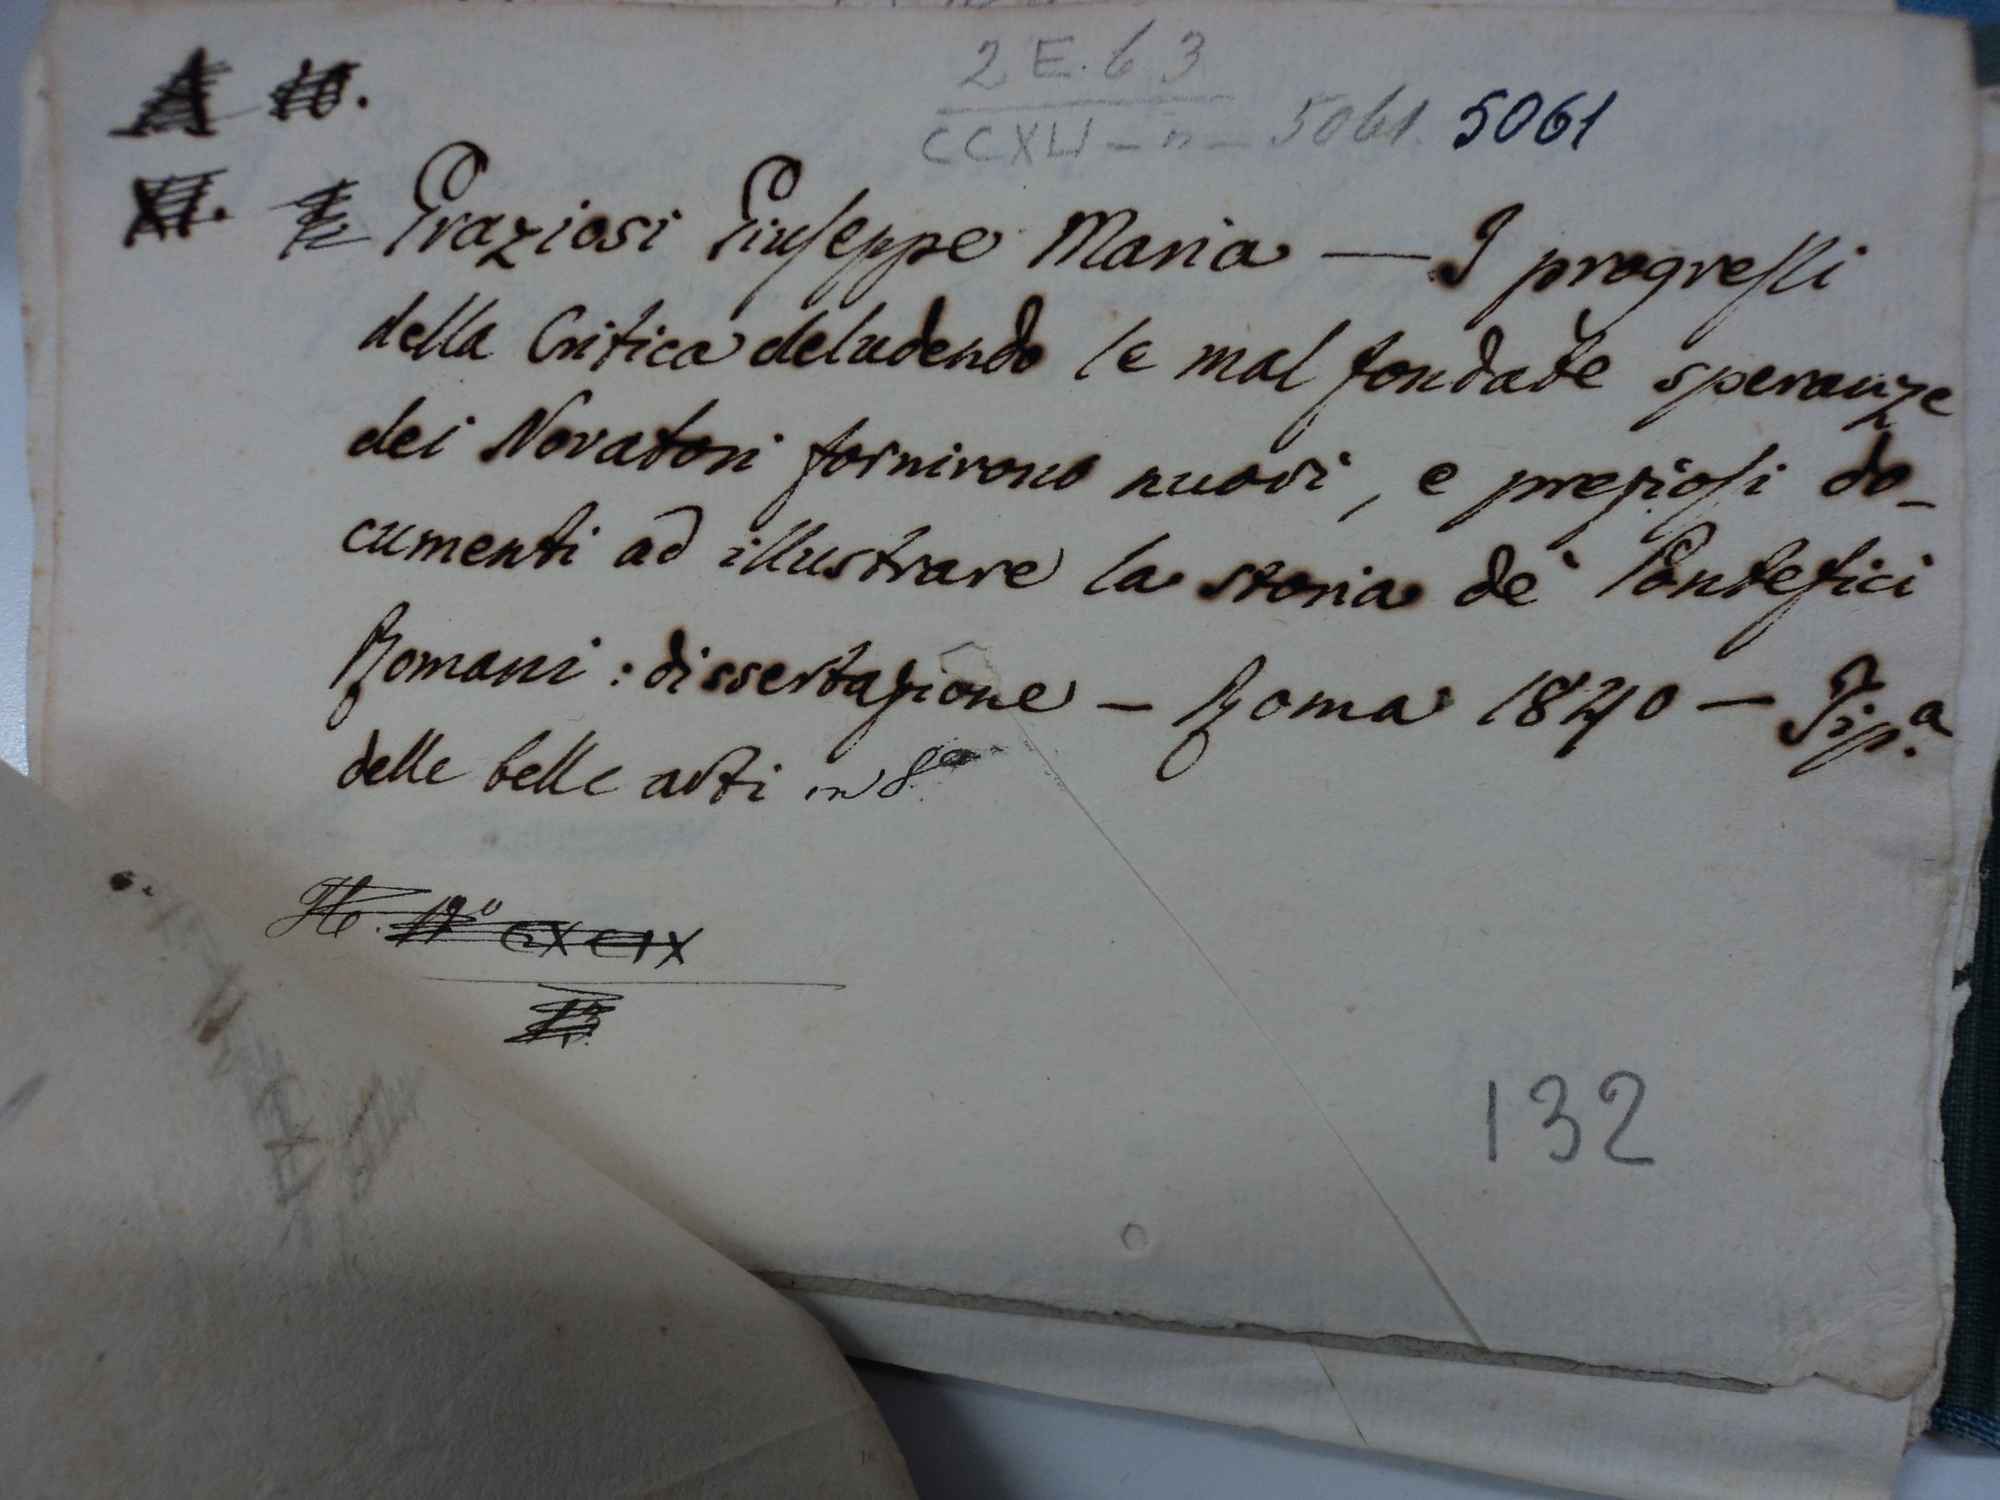 2 E. 6 3
CCXLI - n - 5061. 5061
A 10.
XI. Graziosi Giuseppe Maria — I progressi
della Critica deludendo le mal fondate speranze
dei Novatori fornirono nuovi, e preziosi do-
cumenti ad illustrare la storia de' Pontefici
Romani : dissertazione — Roma 1840 — Tip.a
delle belle arti in 8.o
Ho. 12o CXCIX
13.
132